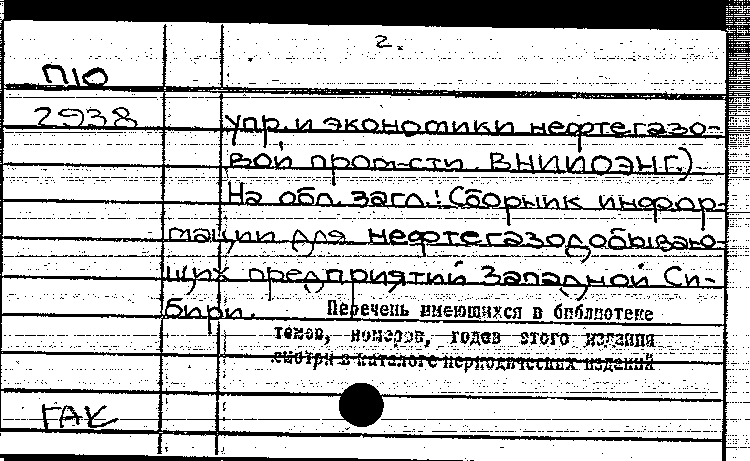 2.
П10
2938
упр. и экономики нефтегазо-
вой пром-сти ВНИИОЭНГ.)
На обл. загл.: Сборник инфор-
мации для нефтегазодобываю-
щих предприятий Западной Си-
бири.
Перечень имеющихся в библиотеке
томов, номеров, годов этого издания
смотри в каталоге периодических изданий
ГАК